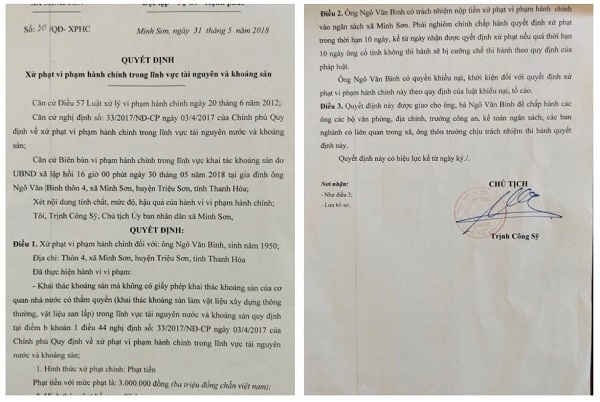 Số: 50/QĐ- XPHC
Minh Sơn, ngày 31 tháng 5 năm 2018
QUYẾT ĐỊNH
Xử phạt vi phạm hành chính trong lĩnh vực tài nguyên và khoáng sản
Căn cứ Điều 57 Luật xử lý vi phạm hành chính ngày 20 tháng 6 năm 2012;
Căn cứ nghị định số: 33/2017/NĐ-CP ngày 03/4/2017 của Chính phủ Quy
định về xử phạt vi phạm hành chính trong lĩnh vực tài nguyên nước và khoáng
sản;
Căn cứ Biên bản vi phạm hành chính trong lĩnh vực khai tác khoáng sản do
UBND xã lập hồi 16 giờ 00 phút ngày 30 tháng 05 năm 2018 tại gia đình ông
Ngô Văn Bình thôn 4, xã Minh Sơn, huyện Triệu Sơn, tỉnh Thanh Hóa;
Xét nội dung tính chất, mức độ, hậu quả của hành vi vi phạm hành chính;
Tôi, Trịnh Công Sỹ, Chủ tịch Ủy ban nhân dân xã Minh Sơn,
QUYẾT ĐỊNH:
Điều 1. Xử phạt vi phạm hành chính đối với: ông Ngô Văn Bình, sinh năm 1950;
Địa chỉ: Thôn 4, xã Minh Sơn, huyện Triệu Sơn, tỉnh Thanh Hóa
Đã thực hiện hành vi vi phạm:
- Khai thác khoáng sản mà không có giấy phép khai thác khoáng sản của cơ
quan nhà nước có thẩm quyền (khai thác khoáng sản làm vật liệu xây dựng thông
thường, vật liệu san lấp) trong lĩnh vực tài nguyên nước và khoáng sản quy định
tại điểm b khoản 1 điều 44 nghị định số: 33/2017/NĐ-CP ngày 03/4/2017 của
Chính phủ Quy định về xử phạt vi phạm hành chính trong lĩnh vực tài nguyên
nước và khoáng sản;
1. Hình thức xử phạt chính: Phạt tiền
Phạt tiền với mức phạt là: 3.000.000 đồng (ba triệu đồng chẵn việt nam);
Điều 2. Ông Ngô Văn Bình có trách nhiệm nộp tiền xử phạt vi phạm hành chính
vào ngân sách xã Minh Sơn. Phải nghiêm chỉnh chấp hành quyết định xử phạt
trong thời hạn 10 ngày, kể từ ngày nhận được quyết định xử phạt nếu quá thời hạn
10 ngày ông cố tình không thi hành sẽ bị cưỡng chế thi hành theo quy định của
pháp luật.
Ông Ngô Văn Bình có quyền khiếu nại, khởi kiện đối với quyết định xử
phạt vi phạm hành chính này theo quy định của luật khiếu nại, tố cáo.
Điều 3. Quyết định này được giao cho ông, bà Ngô Văn Bình để chấp hành các
ông các bộ văn phòng, địa chính, trưởng công an, kế toán ngân sách, các ban
nghành có liên quan trong xã, ông thôn trưởng chịu trách nhiệm thi hành quyết
định này.
Quyết định này có hiệu lực kể từ ngày ký./.
Nơi nhận:
- Như điều 3;
- Lưu hồ sơ.
CHỦ TỊCH
Trịnh Công Sỹ